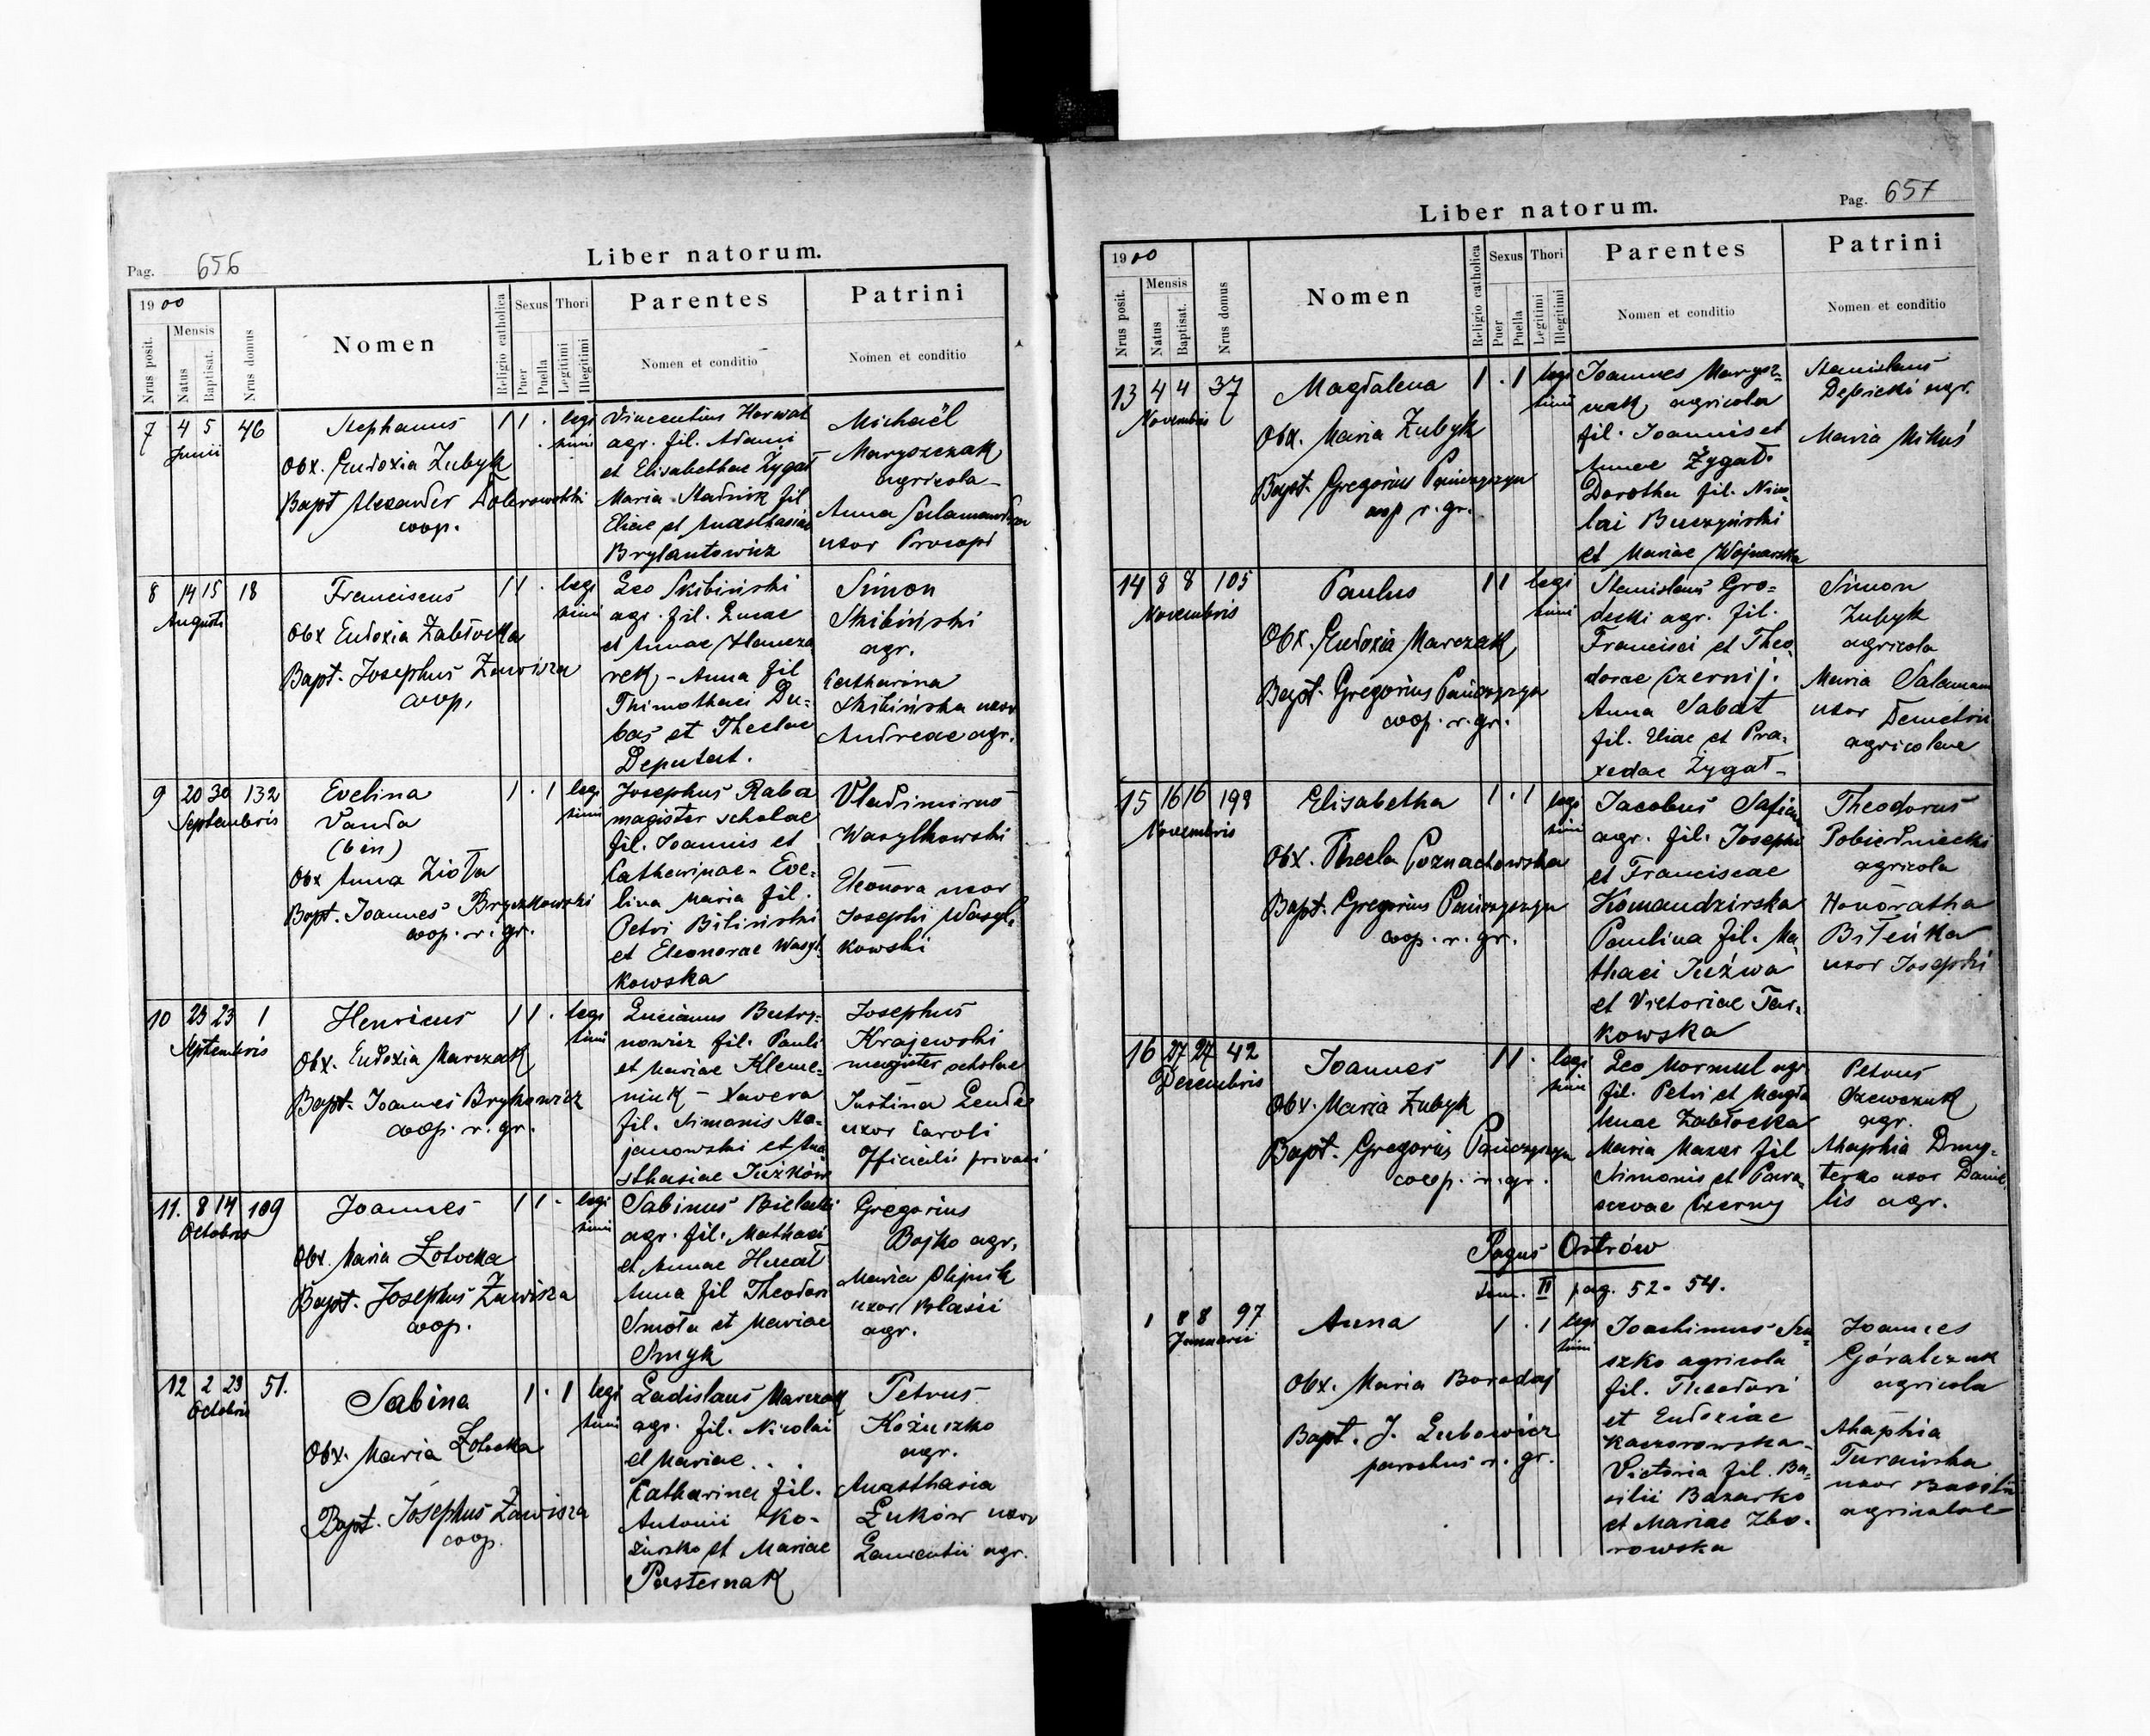 Pag. 656
Liber natorum.
1900
Nrus posit.
Mensis
Natus
Baptisat.
Nrus domus
Nomen
Religio catholica
Sexus
Puer
Puella
Thori
Legitimi
Illegitimi
Parentes
Nomen et conditio
Patrini
Nomen et conditio
7 4 5 46
Junii
Stephanus
Obx. Eudoxia Zubyk
Bapt Alexander Dobrowolski
coop.
1 1 .
legi
timi
Vincentius Horwat
agr. fil. Adami
et Elisabethae Zygał
Maria Stadnik fil
Eliae et Anasthasiae
Brylantowicz
Michaël
Maryszczak
agricola
Anna Salamandra
uxor Procopi
8 14 15 18
Augusti
Franciscus
Obx Eudoxia Zabłocka
Bapt. Josephus Zawisza
coop.
1 1 .
legi
timi
Leo Skibiński
agr. fil. Lucae
et Annae Hamcza
rek - Anna fil
Thimothaei Du=
bas et Theclae
Deputat.
Simon
Skibiński
agr.
Catharina
Skibińska uxor
Andreae agr.
9 20 30 132
Septembris
Evelina
Vanda
(bin)
Obx Anna Zioła
Bapt. Joannes Bryczkowski
coop. r. gr.
1 . 1
legi
timi
Josephus Raba
magister scholae
fil. Joannis et
Catharinae - Eve=
lina Maria fil.
Petri Biliński
et Eleonorae Wasyl
kowska
Vladimirus
Wasylkowski
Eleonora uxor
Josephi Wasyl
kowski
10 23 23 1
Septembris
Henricus
Obx. Eudoxia Marczak
Bapt. Joannes Brykowicz
coop. r. gr.
1 1 .
legi
timi
Lucianus Butry=
nowicz fil. Pauli
et Mariae Kleme=
niuk - Xavera
fil. Simonis Ma=
janowski et Ana
sthasiae Juźków
Josephus
Krajewski
magister scholae
Justina Lenda
uxor Caroli
Officialis privati
11. 8 14 109
Octobris
Joannes
Obx. Maria Zołocka
Bapt. Josephus Zawisza
coop.
1 1 -
legi
timi
Sabinus Bielecki
agr. fil. Mathaei
et Annae Hucał
Anna fil Theodori
Smoła et Mariae
Smyk
Gregorius
Bojko agr.
Maria Olijnik
uxor Blasii
agr.
12 2 23 51.
Octobris
Sabina
Obx. Maria Zołocka
Bapt. Josephus Zawisza
coop.
1 . 1
legi
timi
Ladislaus Marczak
agr. fil. Nicolai
et Mariae . .
Catharina fil.
Antonii Ko-
ziuszko et Mariae
Pasternak
Petrus
Koziuszko
agr.
Anasthasia
Łuków uxor
Laurentii agr.
Liber natorum.
Pag. 657
1900
Nrus posit.
Mensis
Natus
Baptisat.
Nrus domus
Nomen
Religio catholica
Sexus
Puer
Puella
Thori
Legitimi
Illegitimi
Parentes
Nomen et conditio
Patrini
Nomen et conditio
13 4 4 37
Novembris
Magdalena
Obx. Maria Zubyk
Bapt. Gregorius Pańczyszyn
coop r. gr.
1 . 1
legi
timi
Joannes Marysz=
czak agricola
fil. Joannis et
Annae Zygał.
Dorothea fil. Nico
lai Buczyński
et Mariae Wojnarska
Stanislaus
Dębicki agr.
Maria Mikuś
14 8 8 105
Novembris
Paulus
Obx. Eudoxia Marczak
Bapt. Gregorius Pańczyszyn
coop. r. gr.
1 1
legi
timi
Stanislaus Gro=
decki agr. fil.
Francisci et Theo
dorae Czernij.
Anna Sabat
fil. Eliae et Pra.
xedae Zygał -
Simon
Zubyk
agricola
Maria Salaman
uxor Demetrii
agricolae
15 16 16 198
Novembris
Elisabetha
Obx. Thecla Poznachowska
Bapt. Gregorius Pańczyszyn
coop. r. gr.
1 . 1
legi
timi
Jacobus Safian
agr. fil. Josephi
et Franciscae
Komandzirska
Paulina fil. Ma
thaei Juźwa
et Victoriae Tur.
kowska
Theodorus
Pobiedniecki
agricola
Honoratha
Bileńka
uxor Josephi
16 27 27 42
Decembris
Joannes
Obx. Maria Zubyk
Bapt. Gregorius Pańczyszyn
coop. r. gr.
1 1 .
legi
timi
Leo Mormul agr.
fil. Petri et Magda
lenae Zabłocka
Maria Mazur fil
Simonis et Para=
scevae Czerny
Petrus
Szewczuk
agr.
Ahaphia Dmy=
terko uxor Danie
lis agr.
Pagus Ostrów
tom. II pag. 52-54.
1 8 8 97
Januarii
Anna
Obx. Maria Boradaj
Bapt. J. Lubowicz
parochus r. gr.
1 . 1
legi
timi
Joachimus Szu
szko agricola
fil. Theodori
et Eudoxiae
Kaczorowska -
Victoria fil. Ba=
silii Bazarko
et Mariae Zbo.
rowska
Joannes
Góralczuk
agricola
Ahaphia
Turańska
uxor Basilii
agricolae